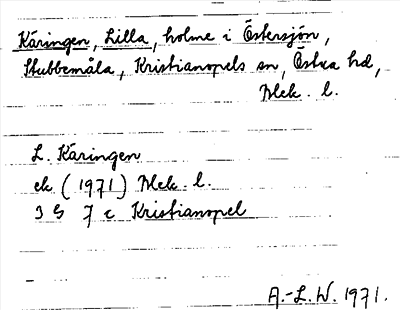 Käringen, Lilla, holme i Östersjön,
Stubbemåla, Kristianopels sn, Östra hd,
Blek. l.
L. Käringen
ek (1971) Blek. l.
3 G 7 c Kristianopel
A.-L.W. 1971.